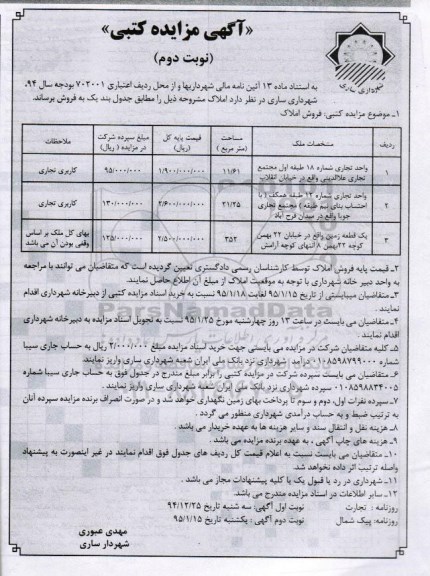 «آگهی مزایده کتبی»
(نوبت دوم)
شهرداری ساری
به استناد ماده ۱۳ آئین نامه مالی شهرداریها و از محل ردیف اعتباری ۷۰۲۰۰۱ بودجه سال ۹۴،
شهرداری ساری در نظر دارد املاک مشروحه ذیل را مطابق جدول بند یک به فروش برساند.
۱ـ موضوع مزایده کتبی: فروش املاک
ردیف مشخصات ملک مساحت (متر مربع) قیمت پایه کل (ریال) مبلغ سپرده شرکت در مزایده (ریال) ملاحظات
۱ واحد تجاری شماره ۱۸ طبقه اول مجتمع تجاری علاالدینی واقع در خیابان انقلاب ۱۱/۶۱ ۱/۹۰۰/۰۰۰/۰۰۰ ۹۵/۰۰۰/۰۰۰ کاربری تجاری
۲ واحد تجاری شماره ۱۲ طبقه همکف (با احتساب بنای نیم طبقه) مجتمع تجاری جویا واقع در میدان فرح آباد ۲۱/۲۵ ۲/۶۰۰/۰۰۰/۰۰۰ ۱۳۰/۰۰۰/۰۰۰ کاربری تجاری
۳ یک قطعه زمین واقع در خیابان ۲۲ بهمن کوچه ۲۲بهمن ۸ انتهای کوچه آرامش ۳۵۲ ۲/۵۰۰/۰۰۰/۰۰۰ ۱۲۵/۰۰۰/۰۰۰ بهای کل ملک بر اساس وقفی بودن آن می باشد
۲ـ قیمت پایه فروش املاک توسط کارشناسان رسمی دادگستری تعیین گردیده است که متقاضیان می توانند با مراجعه
به واحد دبیر خانه شهرداری با توجه به موقعیت املاک از مبلغ آن اطلاع حاصل نمایند.
۳ـ متقاضیان میبایستی از تاریخ ۹۵/۱/۱۵ لغایت ۹۵/۱/۱۸ نسبت به خرید اسناد مزایده کتبی از دبیرخانه شهرداری اقدام
نمایند.
۴ـ متقاضیان می بایست در ساعت ۱۳ روز چهارشنبه مورخ ۹۵/۱/۲۵ نسبت به تحویل اسناد مزایده به دبیرخانه شهرداری
اقدام نمایند
۵ـ کلیه متقاضیان شرکت در مزایده می بایستی جهت خرید اسناد مزایده مبلغ ۲/۰۰۰/۰۰۰ ریال به حساب جاری سیبا
شماره ۰۱۰۸۵۹۸۷۹۹۰۰۰ درآمد شهرداری نزد بانک ملی ایران شعبه شهرداری ساری واریز نمایند.
۶ـ متقاضیان می بایست سپرده شرکت در مزایده کتبی را برابر مبلغ مندرج در جدول فوق به حساب جاری سیبا شماره
۰۱۰۸۵۹۸۸۳۴۰۰۵ سپرده شهرداری نزد بانک ملی ایران شعبه شهرداری ساری واریز نمایند.
۷ـ سپرده نفرات اول، دوم و سوم تا پرداخت بهای زمین نگهداری خواهد شد و در صورت انصراف برنده مزایده سپرده آنان
به ترتیب ضبط و به حساب درآمدی شهرداری منظور می گردد.
۸ـ هزینه نقل و انتقال سند و سایر هزینه ها به عهده خریدار می باشد.
۹ـ هزینه های چاپ آگهی، به عهده برنده مزایده می باشد.
۱۰ـ متقاضیان می بایست نسبت به اعلام قیمت کل ردیف های جدول فوق اقدام نمایند در غیر اینصورت به پیشنهاد
واصله ترتیب اثر داده نخواهد شد.
۱۱ـ شهرداری در رد یا قبول یک یا کلیه پیشنهادات مجاز می باشد.
۱۲ـ سایر اطلاعات در اسناد مزایده مندرج می باشد.
روزنامه: تجارت نوبت اول آگهی: سه شنبه تاریخ ۹۴/۱۲/۲۵
روزنامه: پیک شمال نوبت دوم آگهی: یکشنبه تاریخ ۹۵/۱/۱۵
مهدی عبوری
شهردار ساری